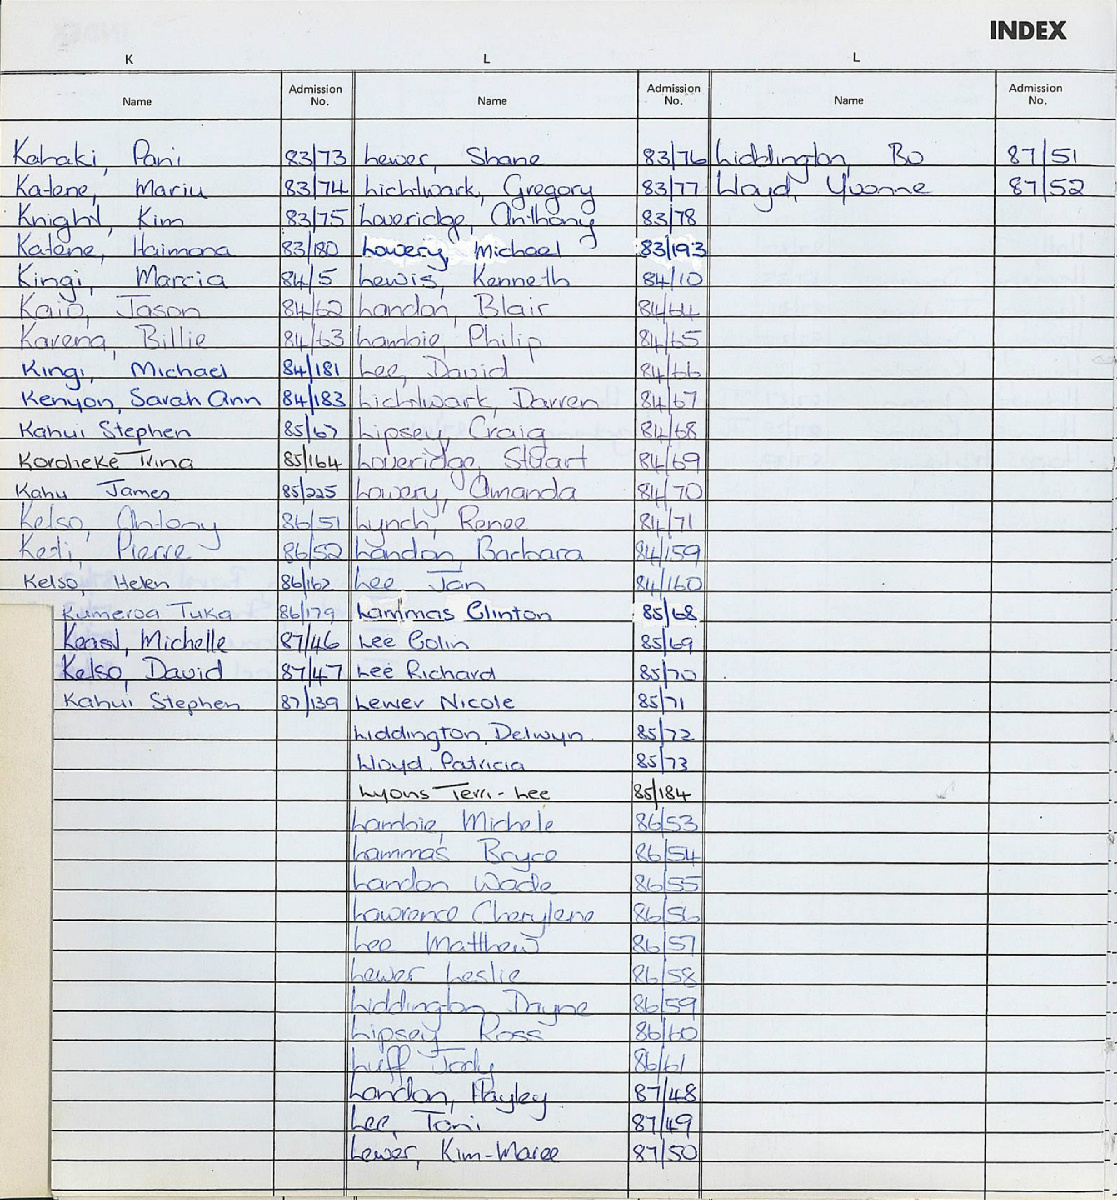 INDEX
K
Name Admission No.
Kahaki, Pani 83/73
Katene, Mariu 83/74
Knight, Kim 83/75
Katene, Haimona 83/180
Kingi, Marcia 84/5
Kaio, Jason 84/62
Karena, Billie 84/63
Kingi, Michael 84/181
Kenyon, Sarah Ann 84/183
Kahui Stephen 85/67
Koroheke Trina 85/164
Kahu James 85/225
Kelso, Antony 86/51
Kedi, Pierre 86/52
Kelso, Helen 86/162
Kumeroa Tuka 86/179
Keast, Michelle 87/46
Kelso, David 87/47
Kahui Stephen 87/139
L
Name Admission No.
Lewer, Shane 83/76
Lichtwark, Gregory 83/77
Loveridge, Anthony 83/78
Lowery, Michael 83/193
Lewis, Kenneth 84/10
Landon, Blair 84/64
Lambie, Philip 84/65
Lee, David 84/66
Lichtwark, Darren 84/67
Lipsey, Craig 84/68
Loveridge, Stuart 84/69
Lowery, Amanda 84/70
Lynch, Renee 84/71
Landon, Barbara 84/159
Lee Jan 84/160
Lammas Clinton 85/68
Lee Colin 85/69
Lee Richard 85/70
Lewer Nicole 85/71
Liddington, Delwyn 85/72
Lloyd, Patricia 85/73
Lyons Terri-Lee 85/184
Lambie, Michele 86/53
Lammas Bryce 86/54
Landon Wade 86/55
Lawrence Cherylene 86/56
Lee Matthew 86/57
Lewer Leslie 86/58
Liddington Dayne 86/59
Lipsey Ross 86/60
Luff Jody 86/61
Landon, Hayley 87/48
Lee, Toni 87/49
Lewer, Kim-Maree 87/50
L
Name Admission No.
Liddington, Bo 87/51
Lloyd, Yvonne 87/52